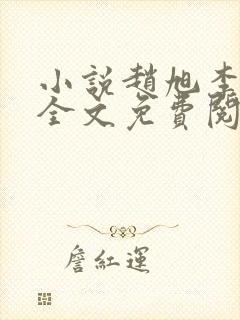 小說趙旭李
全文免費閱
詹紅運